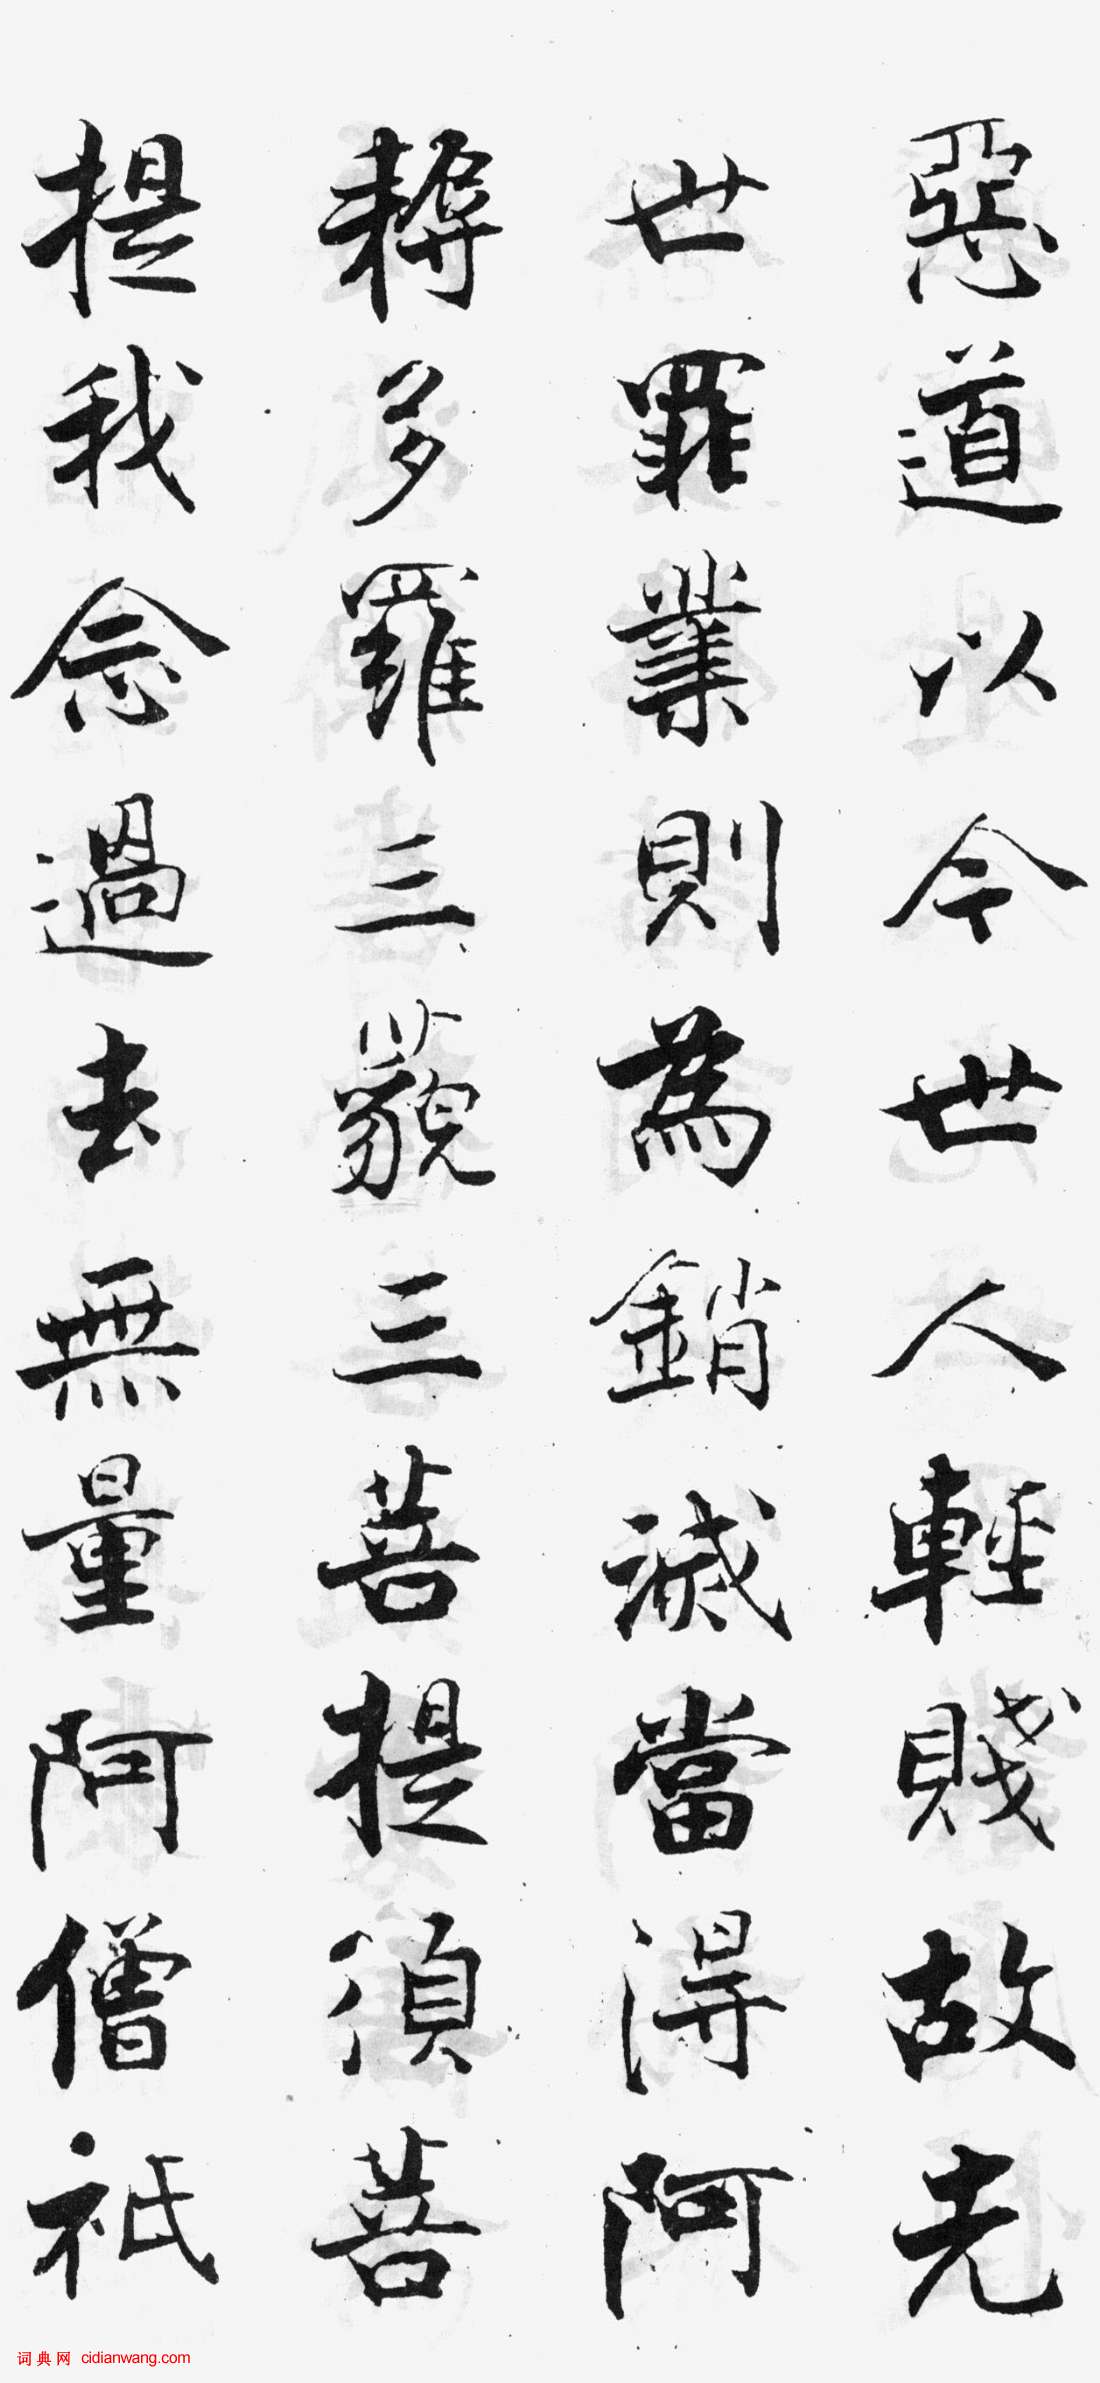 惡道以今世人輕賤故先
世罪業則為銷滅當得阿
耨多羅三藐三菩提須菩
提我念過去無量阿僧祇
词典网 cidianwang.com